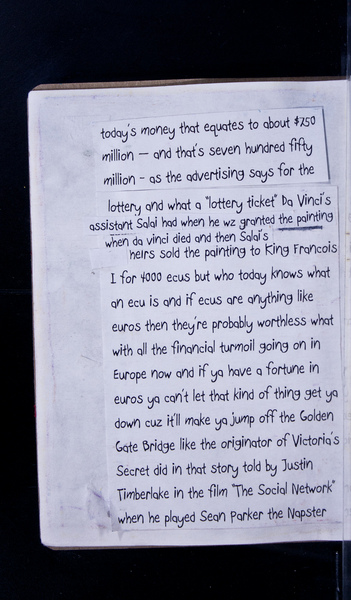 today's money that equates to about $750
million — and that's seven hundred fifty
million - as the advertising says for the
lottery and what a "lottery ticket" Da Vinci's
assistant Salai had when he wz granted the painting
when da vinci died and then Salai's
heirs sold the painting to King Francois
I for 4000 ecus but who today knows what
an ecu is and if ecus are anything like
euros then they're probably worthless what
with all the financial turmoil going on in
Europe now and if ya have a fortune in
euros ya can't let that kind of thing get ya
down cuz it'll make ya jump off the Golden
Gate Bridge like the originator of Victoria's
Secret did in that story told by Justin
Timberlake in the film "The Social Network"
when he played Sean Parker the Napster